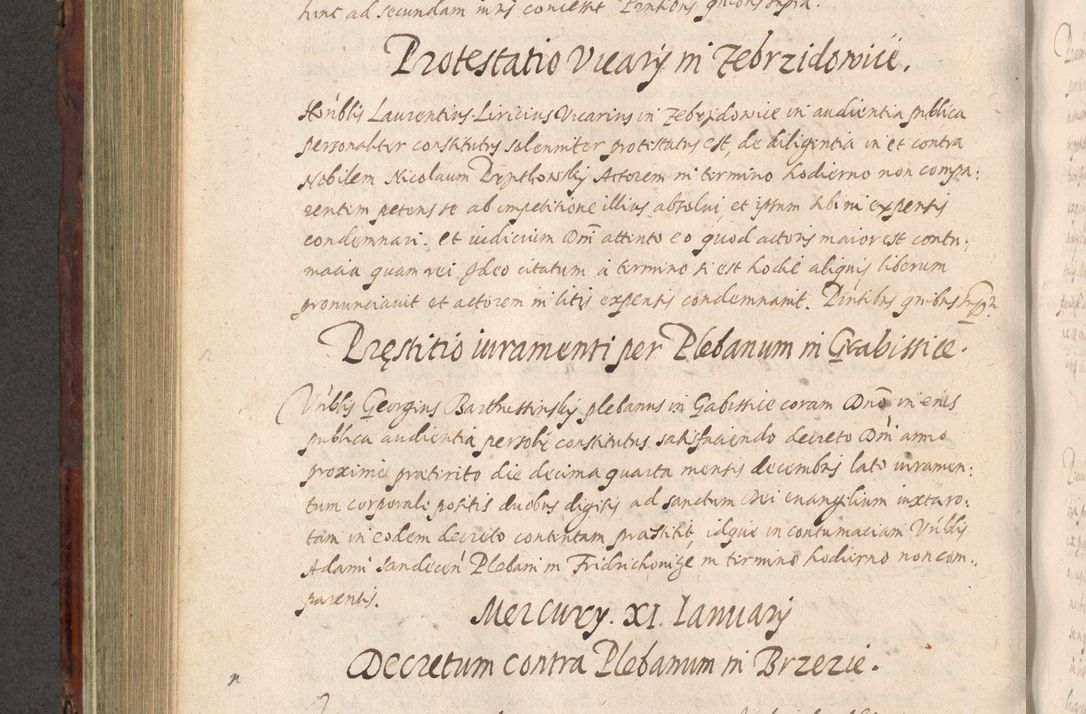 hinc ad secundam iuris concessit Pntibus quibus supra.
Protestatio Vicarij in Zebrzidowice.
Honblis Laurentius Liricius Vicarius in Zebrzidowice in audientia publica
personaliter constitutus solenniter protestatus est, de diligentia in et contra
Nobilem Nicolaum Actorem in termino hodierno non compa:
rentem petens se ab impetitione illius absolui, et ipsum sibi in expensis
condemnari. et iudicium Dni attento eo quod actoris maior est contu:
matia quam rei, Ideo citatum a termino ti est hodie aliquis liberum
pronunciauit et actorem in litis expensis condemnauit. Pntibus quibus supra
Pręstitio iuramenti per Plebanum in Grabissice.
Vnblis Georgius plebanus in Gabissice coram Dno in eius
publica audientia persolr constitutus satisfaciendo decreto Dni anno
proxime praeterito die decima quarta mensis decembris lato iuramen:
tum corporale positis duobus digitis ad sanctum Dei euangelium iuxta ro:
tam in eodem decreto contentam praestitit, idque in contumaciam Vnblis
Adami Sandecen Plebani in Fridrichowize in termino hodierno non com:
parentis.
Mercury. XI. Ianuarij
Decretum contra Plebanum in Brzezie.